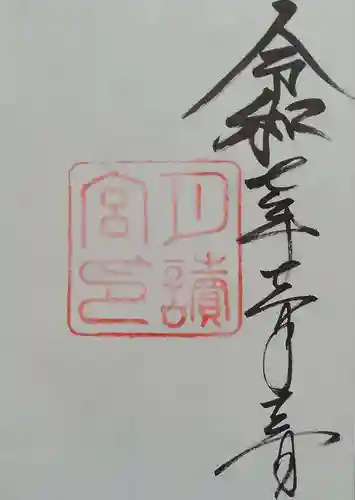 令和七年 月 日
月讀
宮印